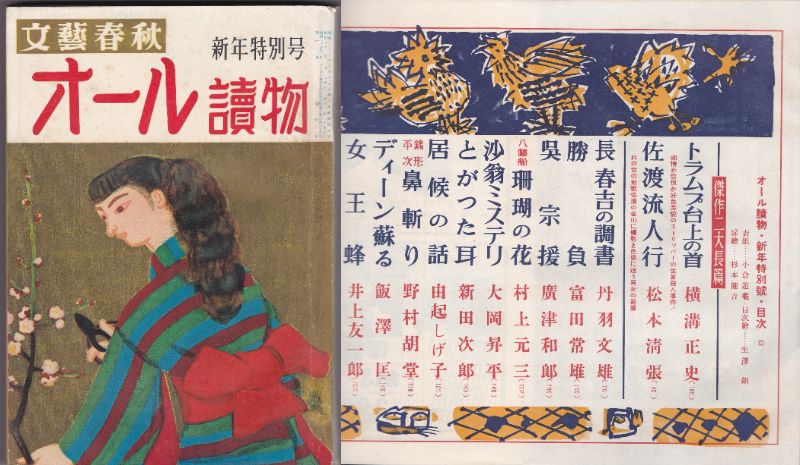 文藝春秋
新年特別号
オール讀物
オール讀物・新年特別號・目次
表紙……小倉遊亀 目次繪……生澤 朗
扉繪……杉本健吉
傑作二大長篇
トラムプ台上の首 横溝正史
佐渡流人行 松本清張
長春吉の調書 丹羽文雄
勝負 富田常雄
呉宗援 廣津和郎
八幡船 珊瑚の花 村上元三
沙翁ミステリ 大岡昇平
とがつた耳 新田次郎
居候の話 由起しげ子
銭形平次 鼻斬り 野村胡堂
ディーン蘇る 飯澤匡
女王蜂 井上友一郎